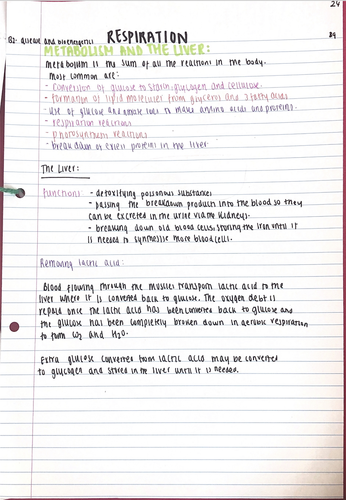 24
B2- disease and bioenergetics RESPIRATION 29
METABOLISM AND THE LIVER:
Metabolism is the sum of all the reactions in the body.
Most common are:
- conversion of glucose to starch, glycogen and cellulose.
- formation of lipid molecules from glycerol and 3 fatty acids
- use of glucose and nitrate ions to make amino acids and proteins.
- respiration reactions
- photosynthesis reactions
- breakdown of excess proteins in the liver.
The Liver:
Functions: - detoxifying poisonous substances
- passing the breakdown products into the blood so they
can be excreted in the urine via the kidneys.
- breaking down old blood cells, storing the iron until it
is needed to synthesise more blood cells.
Removing lactic acid:
Blood flowing through the muscles transport lactic acid to the
liver where it is converted back to glucose. The oxygen debt is
repaid once the lactic acid has been converted back to glucose and
the glucose has been completely broken down in aerobic respiration
to form CO2 and H2O.
Extra glucose converted from lactic acid may be converted
to glycogen and stored in the liver until it is needed.